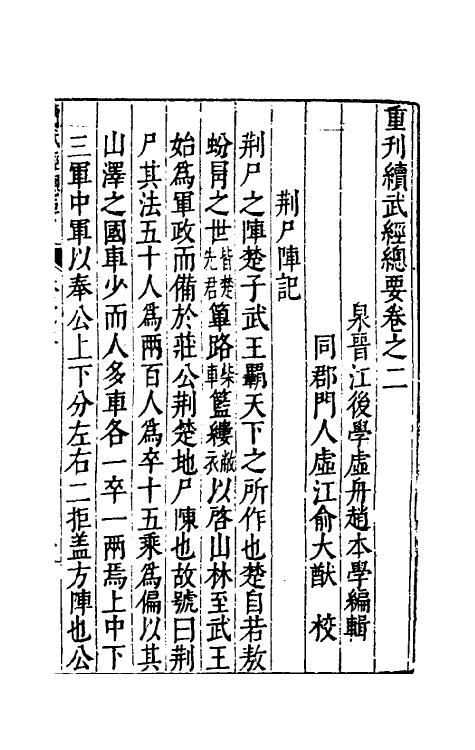 重刊續武經總要卷之二
泉晉江後學虛舟趙本學編輯
同郡門人虛江俞大猷 校
荆尸陣記
荆尸之陣楚子武王霸天下之所作也楚自若敖
蚡冐之世皆楚先君篳路柴車籃縷敝衣以啓山林至武王
始為軍政而備於莊公荆楚地尸陳也故號曰荆
尸其法五十人為兩百人為卒十五乘為偏以其
山澤之國車少而人多車各一卒一兩焉上中下
三軍中軍以奉公上下分左右二拒盖方陣也公